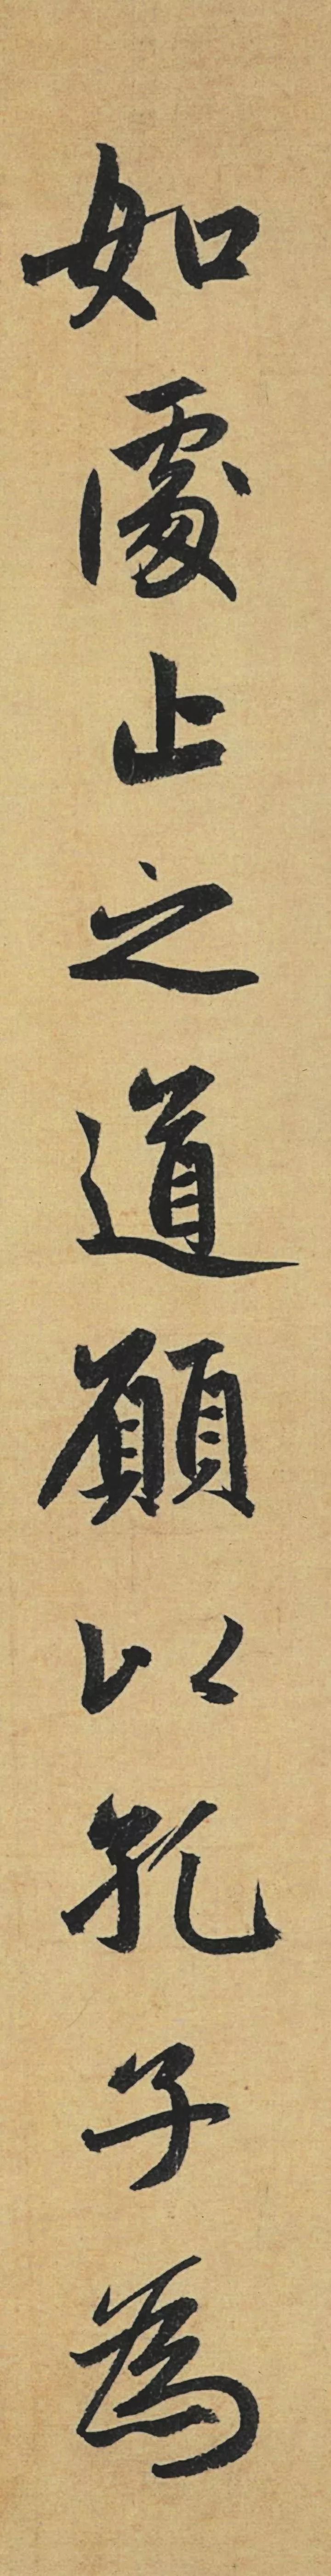 如處止之道願以孔子為